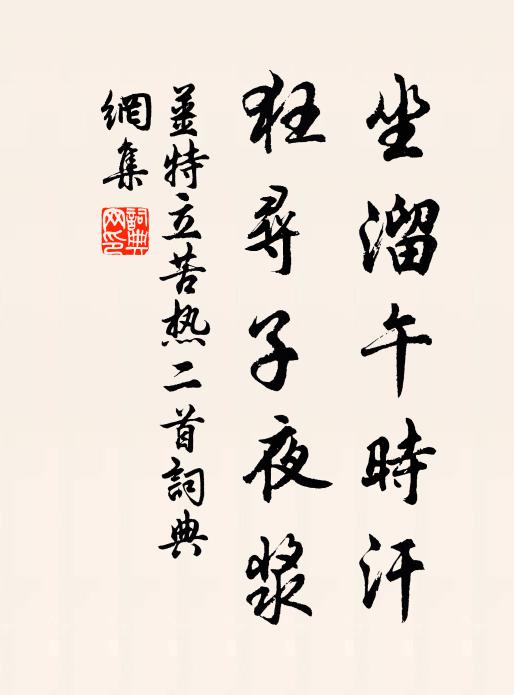 坐溜午時汗
狂尋子夜漿
薑特立苦热二首詞典
網集
詞典网印